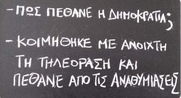 - ΠΩΣ ΠΕΘΑΝΕ Η ΔΗΜΟΚΡΑΤΙΑ;
- ΚΟΙΜΗΘΗΚΕ ΜΕ ΑΝΟΙΧΤΗ
ΤΗ ΤΗΛΕΟΡΑΣΗ ΚΑΙ
ΠΕΘΑΝΕ ΑΠΟ ΤΙΣ ΑΝΑΘΥΜΙΑΣΕΙΣ